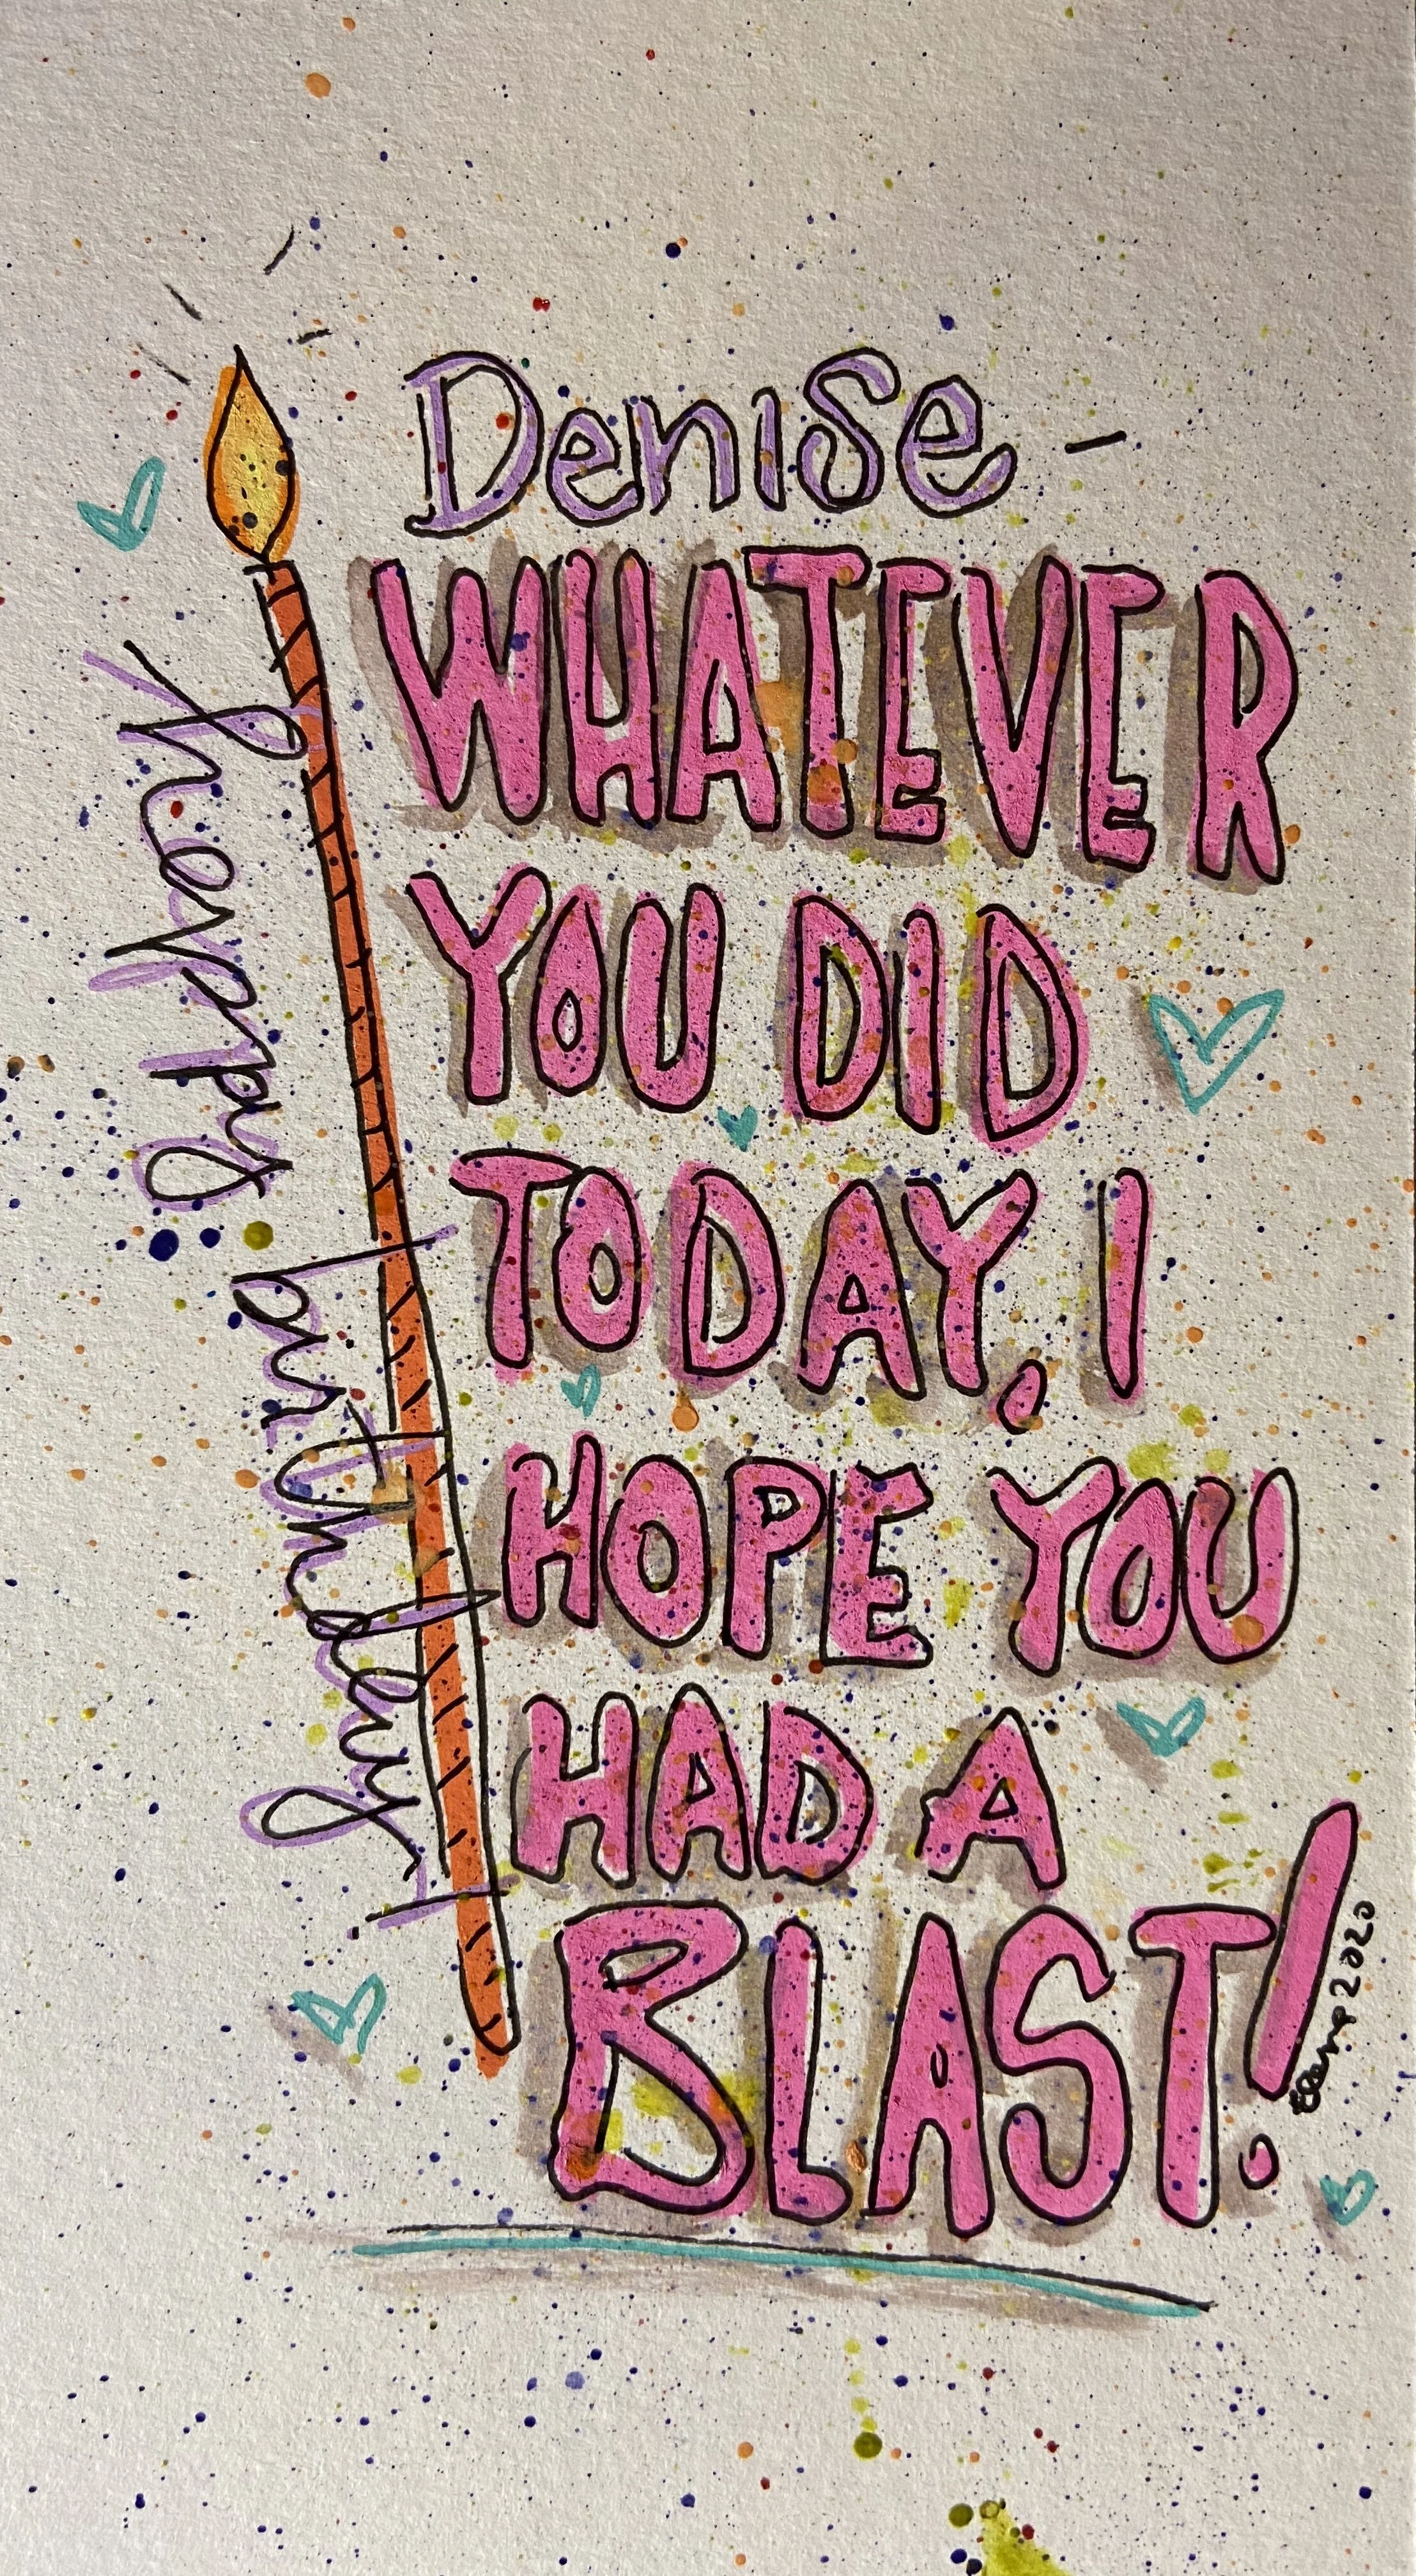 Denise -
WHATEVER
YOU DID
TODAY, I
HOPE YOU
HAD A
BLAST!
happy birthday!
2020